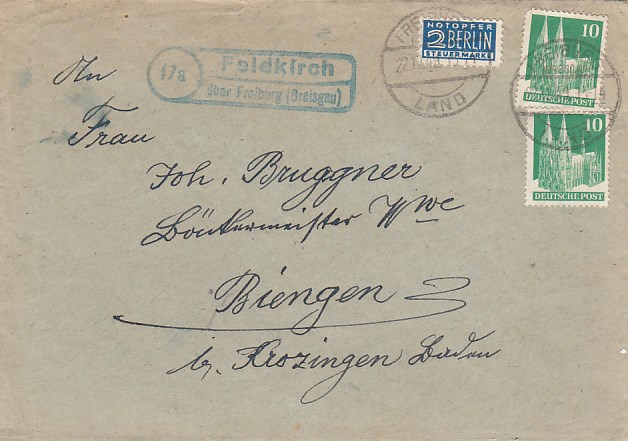 NOTOPFER
2 BERLIN
STEUERMARKE
10
DEUTSCHE POST
10
DEUTSCHE POST
LAND
17a
Feldkirch
über Freiburg (Breisgau)
An
Frau
Joh. Bruggner
Wwe
Biengen
b. Krozingen Baden